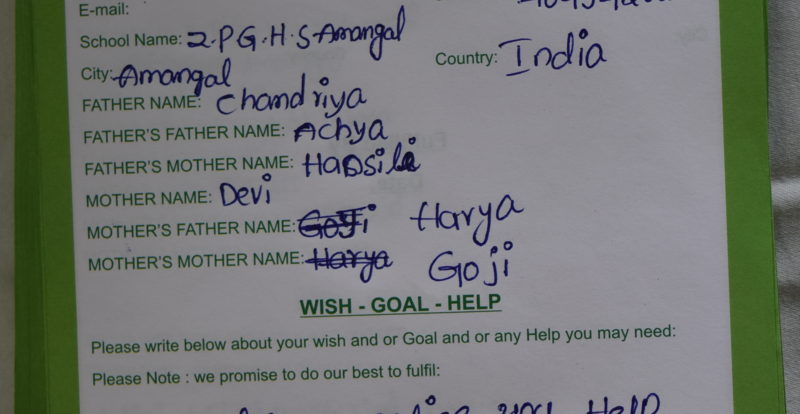 E-mail:
School Name: Z.P.G.H.S-Amangal
City: Amangal Country: India
FATHER NAME: Chandriya
FATHER'S FATHER NAME: Achya
FATHER'S MOTHER NAME:
MOTHER NAME: Devi
MOTHER'S FATHER NAME: Goji Harya
MOTHER'S MOTHER NAME: Harya Goji
WISH - GOAL - HELP
Please write below about your wish and or Goal and or any Help you may need:
Please Note : we promise to do our best to fulfil:
you Help